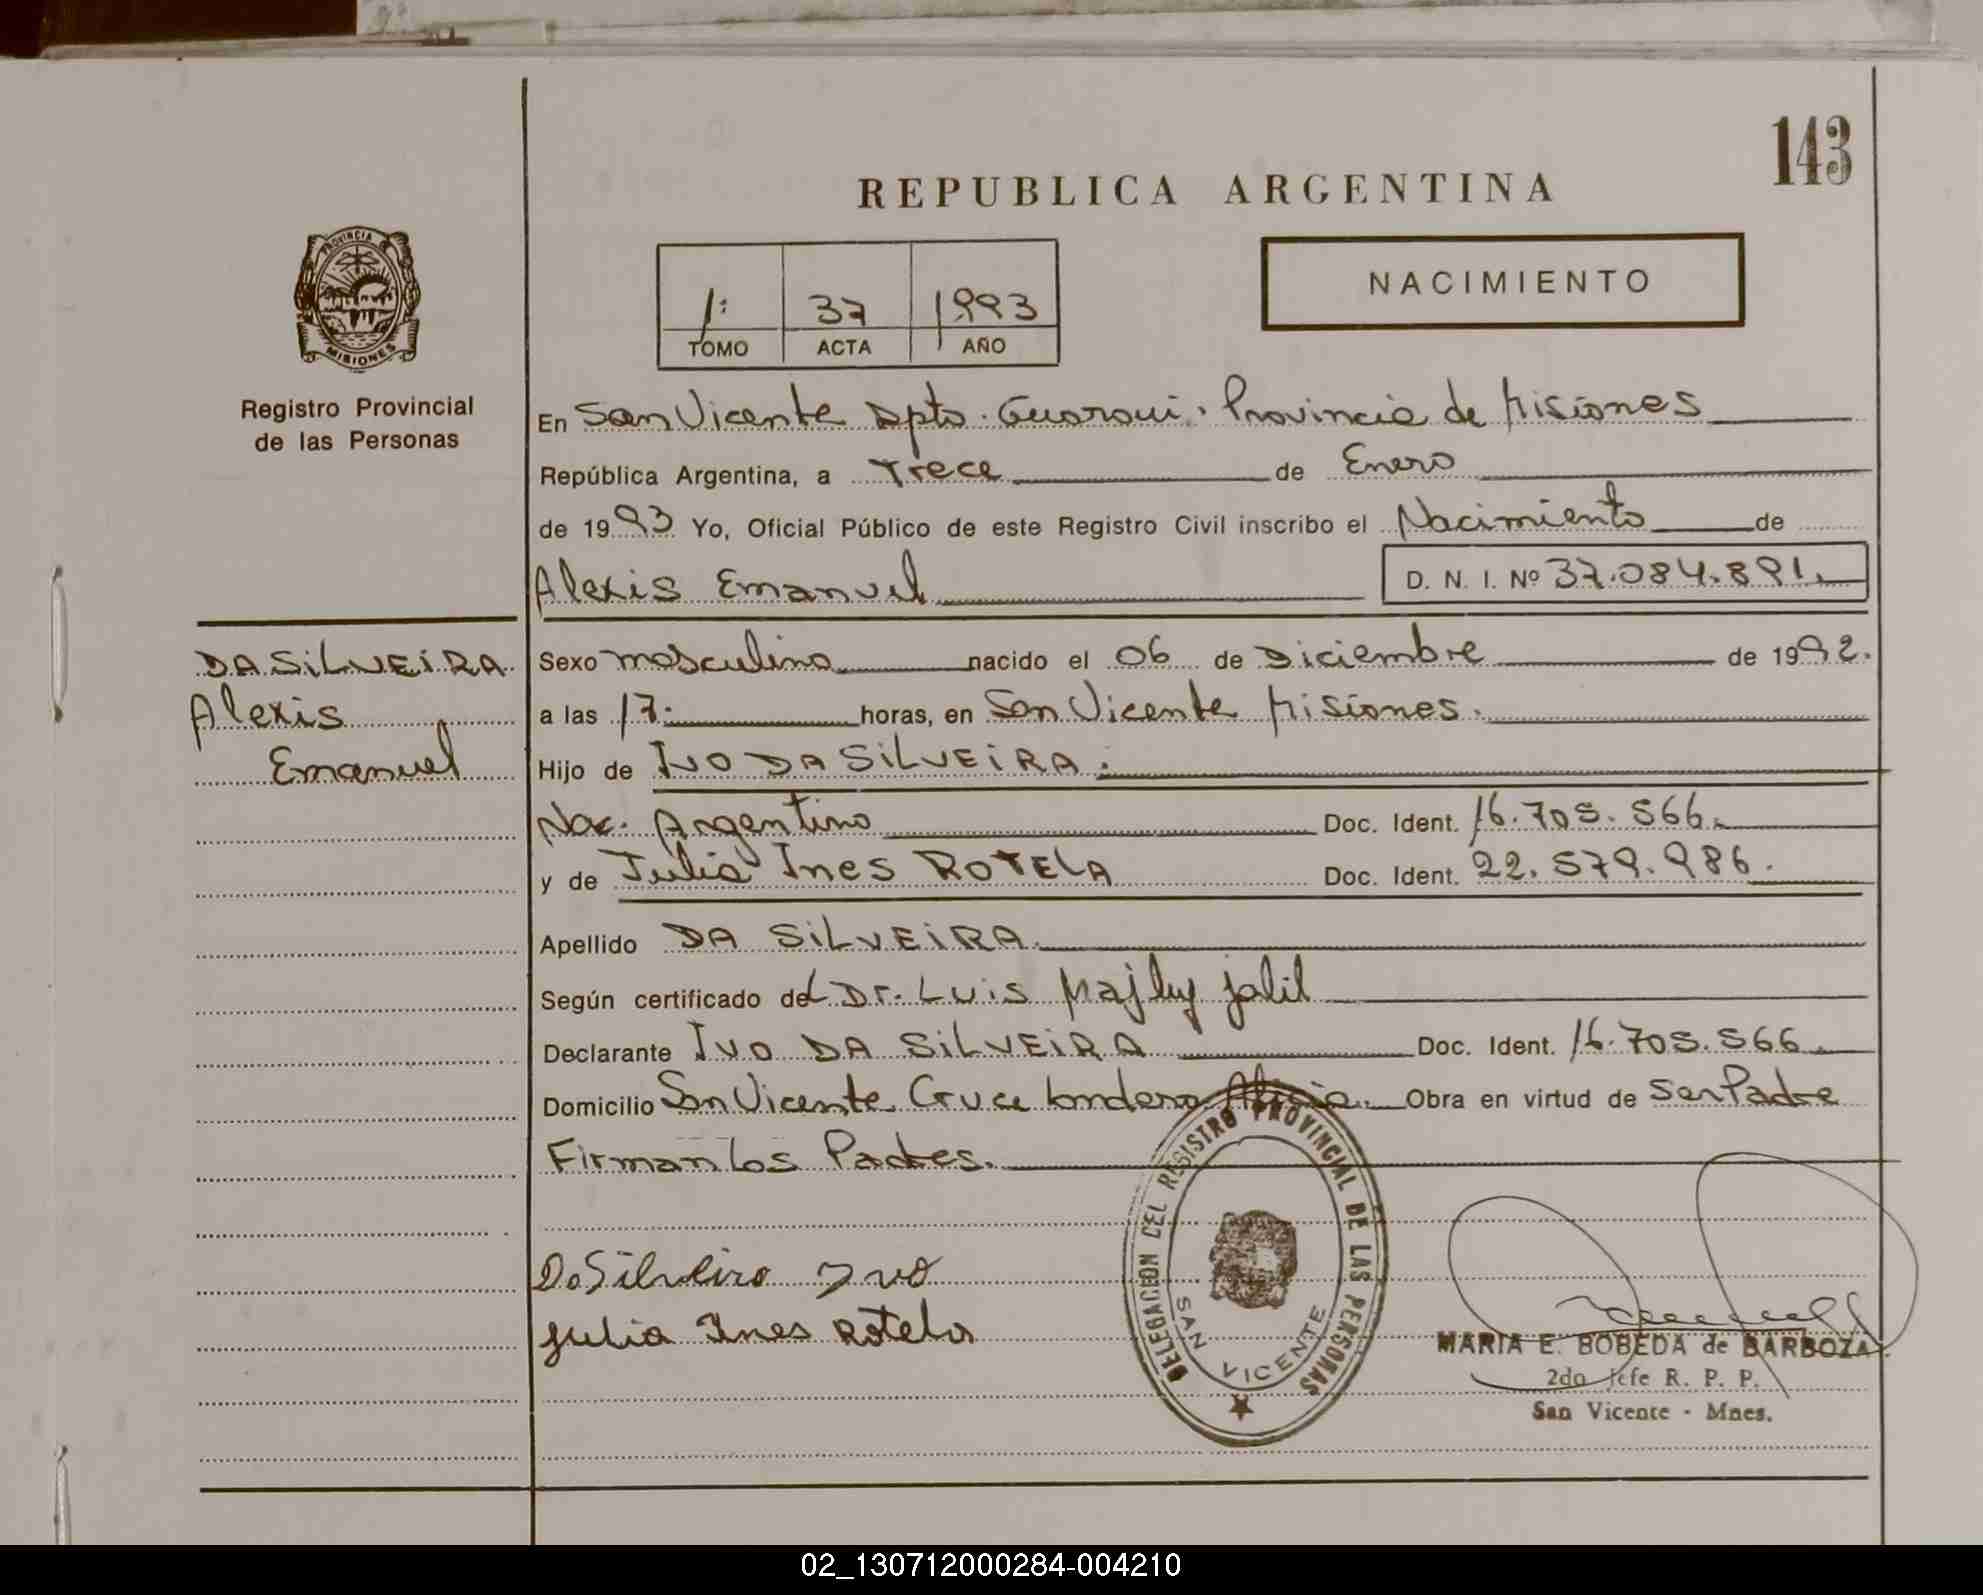 143
REPUBLICA ARGENTINA
PROVINCIA DE MISIONES
Registro Provincial
de las Personas
1: 37 1993
TOMO ACTA AÑO
NACIMIENTO
En San Vicente Dpto. Guaraní. Provincia de Misiones
República Argentina, a Trece de Enero
de 1993 Yo, Oficial Público de este Registro Civil inscribo el Nacimiento de
Alexis Emanuel D. N. I. Nº 37.084.891.
DA SILVEIRA
Alexis
Emanuel
Sexo masculino nacido el 06 de Diciembre de 1992.
a las 17. horas, en San Vicente Misiones.
Hijo de Ivo DA SILVEIRA.
Nac. Argentino Doc. Ident. 16.705.566.
y de Julia Ines ROTELA Doc. Ident. 22.579.986.
Apellido DA SILVEIRA.
Según certificado del Dr. Luis Majluf Jalil
Declarante Ivo DA SILVEIRA Doc. Ident. 16.705.566.
Domicilio San Vicente Cruce Londero Alicia. Obra en virtud de Ser Padre
Firman los Padres.
DaSilveira Ivo
Julia Ines Rotela
DELEGACION DEL REGISTRO PROVINCIAL DE LAS PERSONAS
SAN VICENTE
MARIA E. BOBEDA de BARBOZA
2do Jefe R. P. P.
San Vicente - Mnes.
02_130712000284-004210